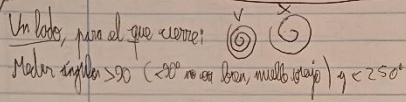 V X
Un lado, para el que cierre:
Medir ángulos >90 (<90° no está bien, muelle viejo) y <250°